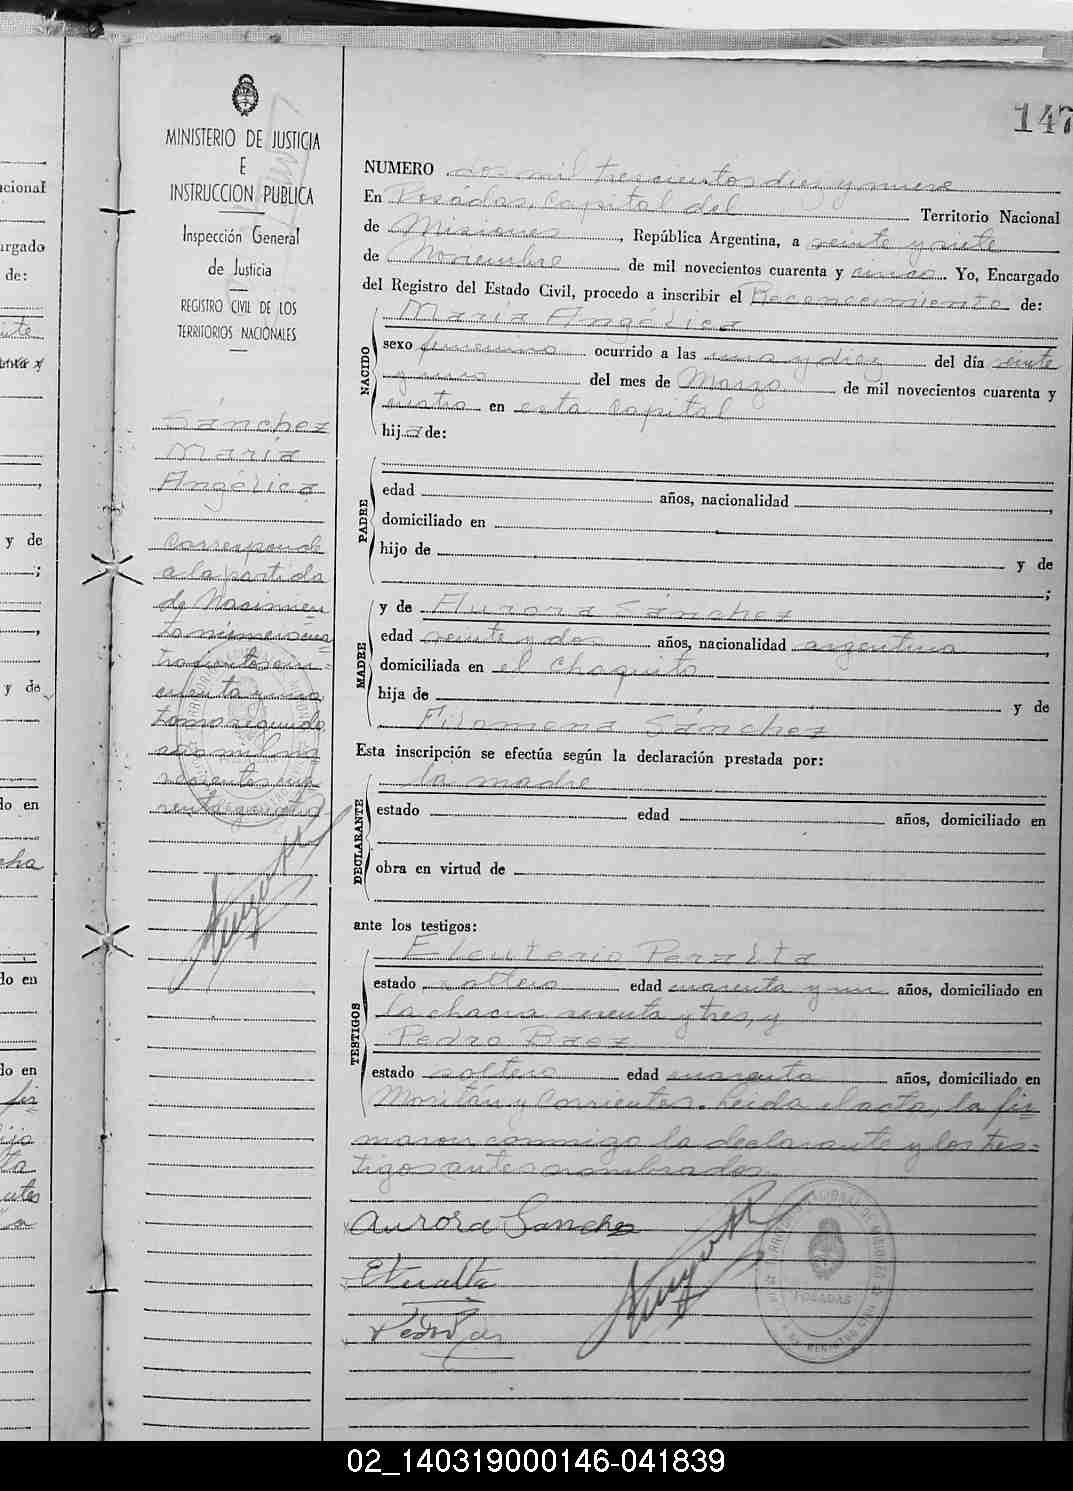 147
MINISTERIO DE JUSTICIA
E
INSTRUCCION PUBLICA
Inspección General
de Justicia
REGISTRO CIVIL DE LOS
TERRITORIOS NACIONALES
Sánchez
María
Angélica
Corresponde
a la partida
de Nacimien
to número cua
trocientos cin=
cuenta y uno
tomo segundo,
año mil no
vecientos cua
renta y cuatro
NUMERO dos mil trescientos diez y nueve
En Posadas, Capital del Territorio Nacional
de Misiones, República Argentina, a veinte y siete
de Noviembre de mil novecientos cuarenta y cinco. Yo, Encargado
del Registro del Estado Civil, procedo a inscribir el Reconocimiento de:
NACIDO
María Angélica
sexo femenino ocurrido a las una y diez del día veinte
y uno del mes de Marzo de mil novecientos cuarenta y
cuatro en esta Capital
hija de:
PADRE
edad años, nacionalidad ,
domiciliado en
hijo de y de
;
MADRE
y de Aurora Sánchez
edad veinte y dos años, nacionalidad argentina
domiciliada en el Chaquito
hija de y de
Filomena Sánchez
Esta inscripción se efectúa según la declaración prestada por:
DECLARANTE
la madre
estado edad años, domiciliado en
obra en virtud de
ante los testigos:
TESTIGOS
Eleuterio Peralta
estado soltero edad cuarenta y un años, domiciliado en
la chacra sesenta y tres, y
Pedro Baez
estado soltero edad cuarenta años, domiciliado en
Moritán y Corrientes. Leída el acta, la fir
maron conmigo la declarante y los tes=
tigos antes nombrados.
Aurora Sanchez
EPeralta
Pedro
POSADAS
cional
argado
de:
y de
;
y de
do en
cha
do en
do en
fir
02_140319000146-041839